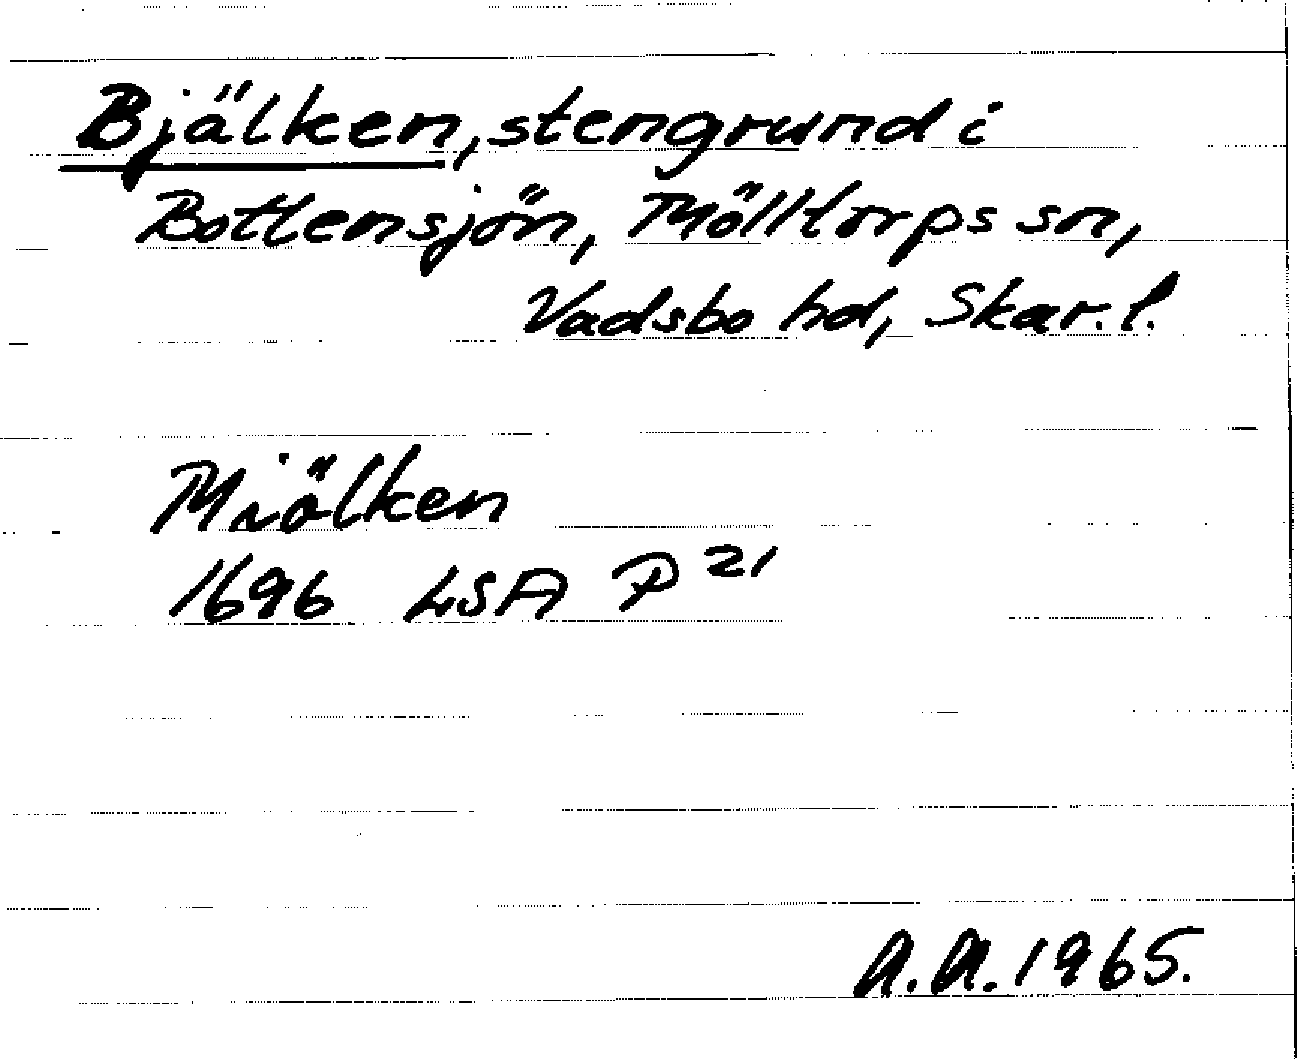 Bjälken, stengrund i
Bottensjön, Mölltorps sn,
Vadsbo hd, Skar. l.
Miölken
1696 LSA P 21
A.A. 1965.